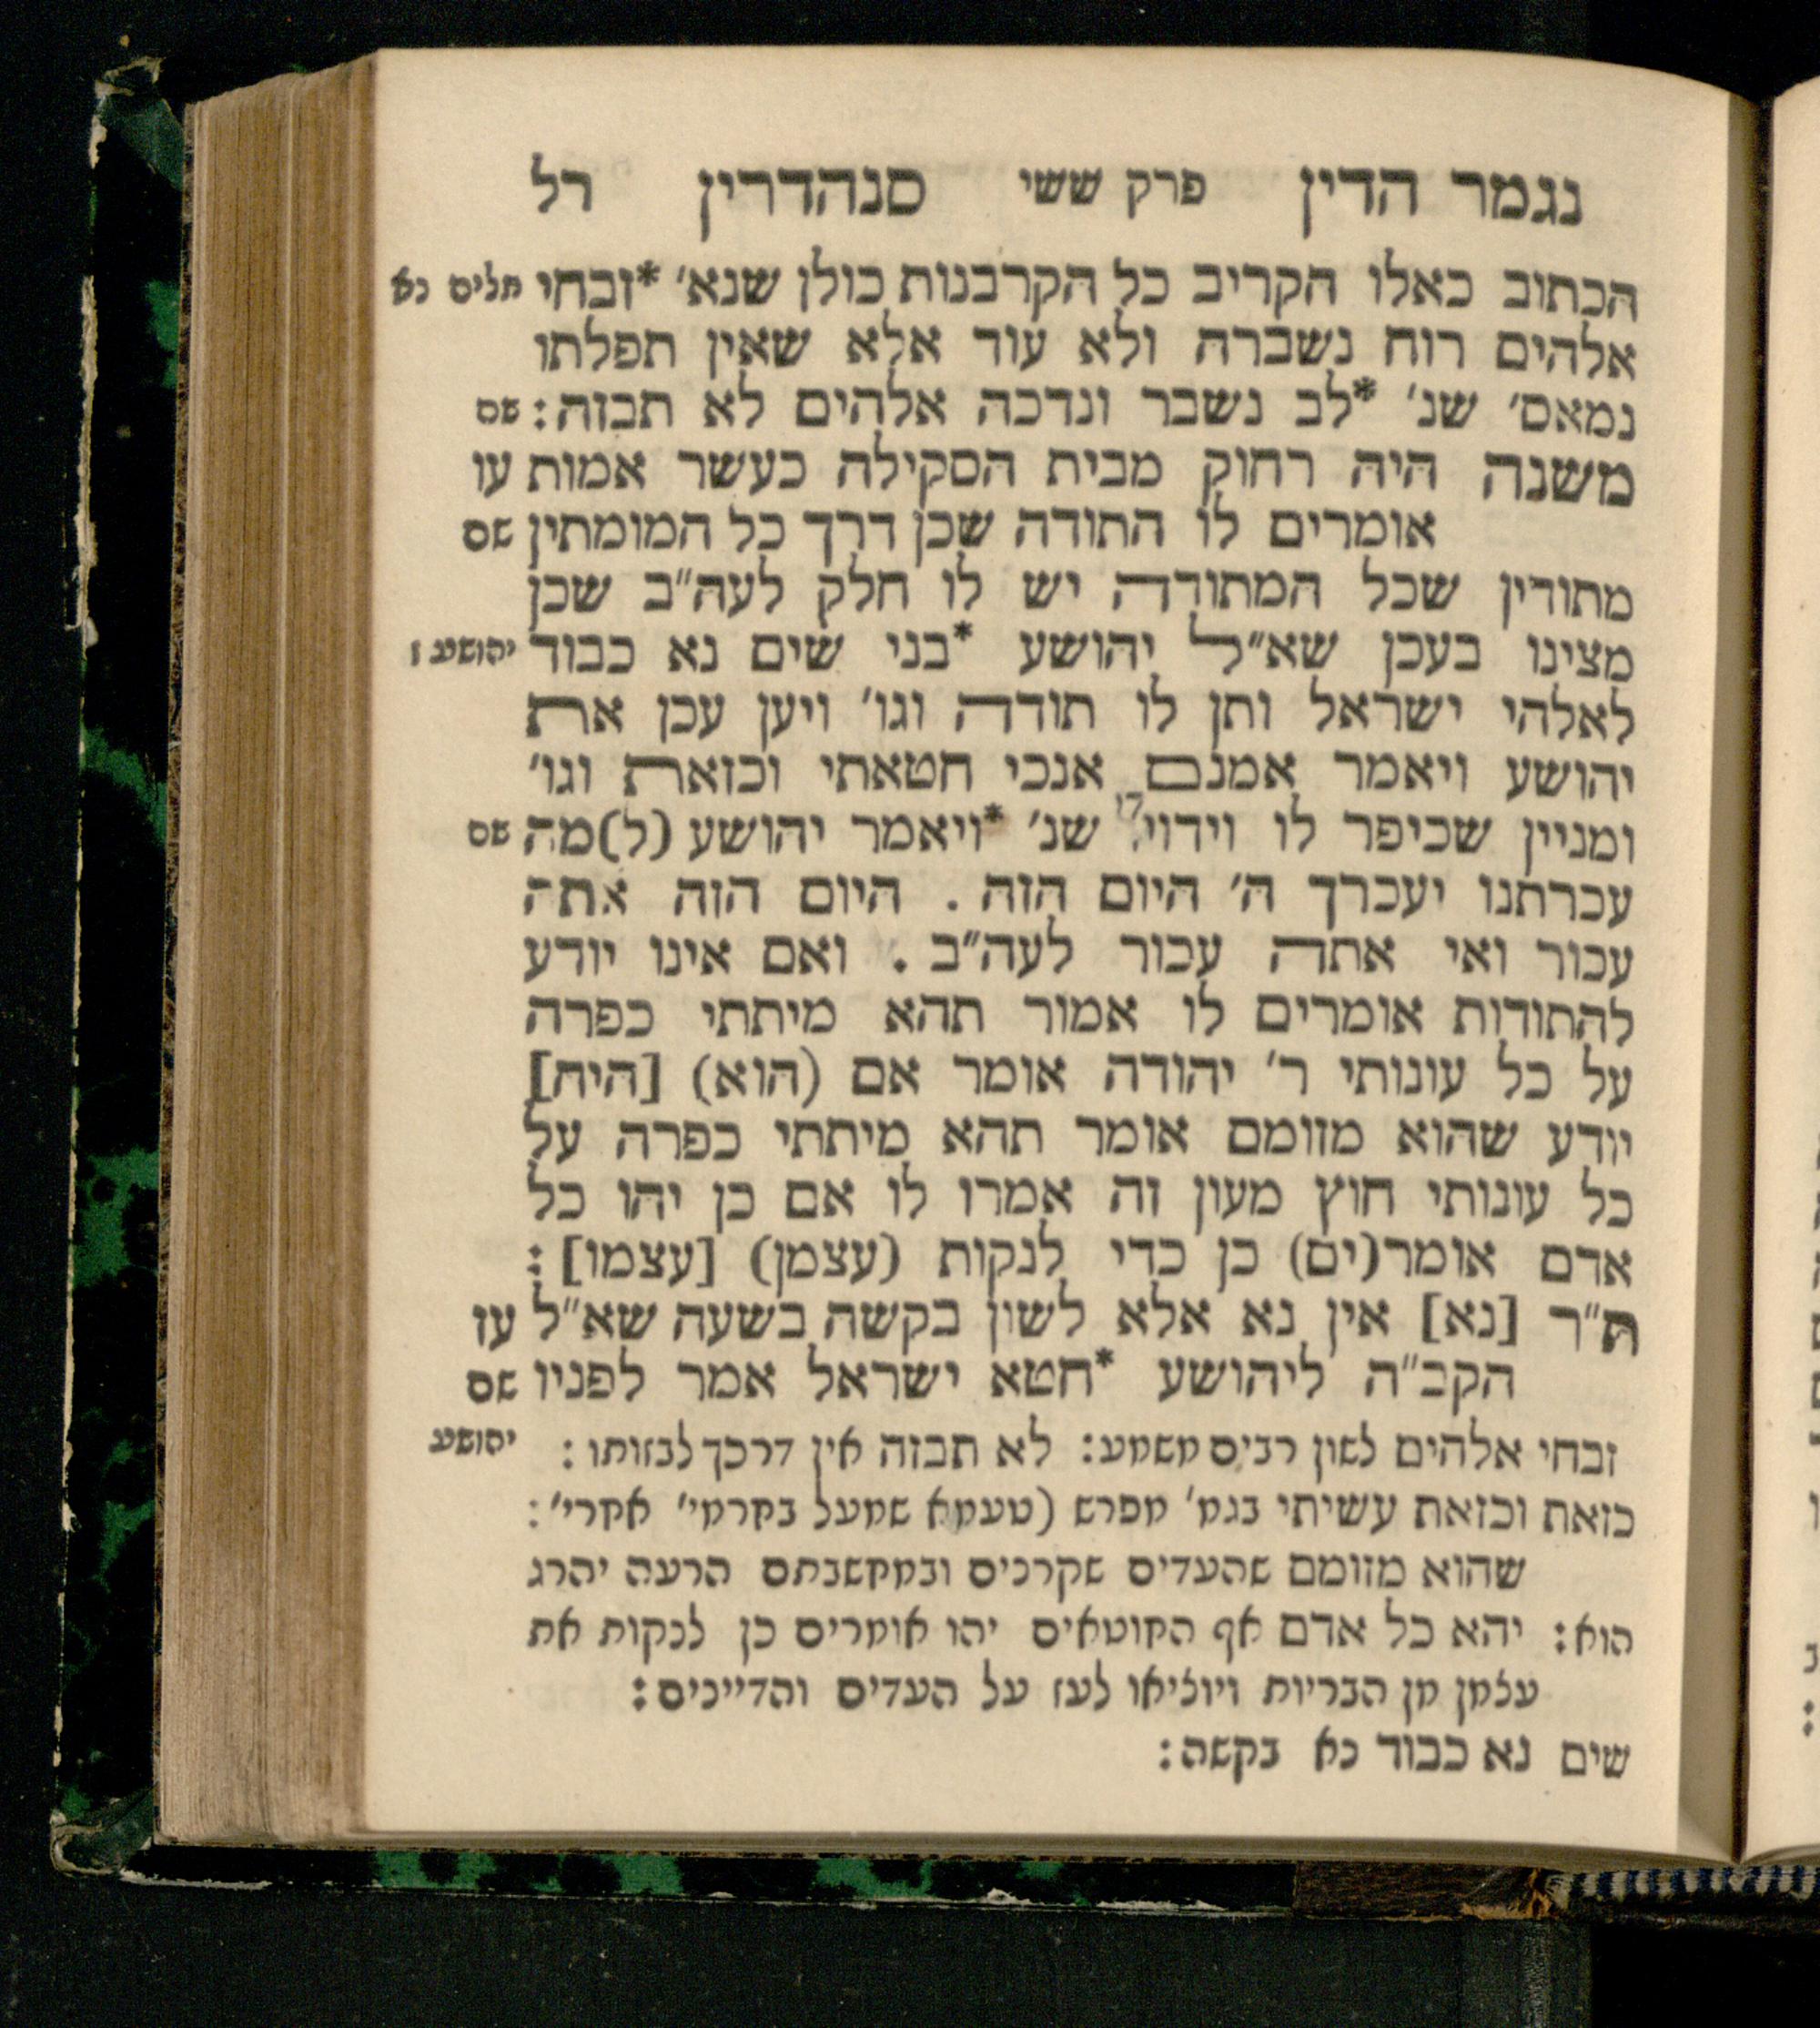 נגמר הדין פרק ששי סנהדרין רל
הכתוב כאלו הקריב כל הקרבנות כולן שנא׳ *זבחי תלים נא
אלהים רוח נשברה ולא עוד אלא שאין תפלתו
נמאם׳ שנ׳ *לב נשבר ונדכה אלהים לא תבזה: שם
משנה היה רחוק מבית הסקילה כעשר אמות עו
אומרים לו התודה שכן דרך כל המומתין שם
מתודין שכל המתודה יש לו חלק לעה״ב שכן
מצינו בעכן שא״ל יהושע *בני שים נא כבוד יהושע ז
לאלהי ישראל ותן לו תודה וגו׳ ויען עכן את
יהושע ויאמר אמנם אנכי חטאתי וכזאת וגו׳
ומניין שכיפר לו וידוי שנ׳ *ויאמר יהושע (ל)מה שם
עכרתנו יעכרך ה׳ היום הזה . היום הזה אתה
עכור ואי אתה עכור לעה״ב . ואם אינו יודע
להתודות אומרים לו אמור תהא מיתתי כפרה
על כל עונותי ר׳ יהודה אומר אם (הוא) [היה]
יודע שהוא מזומם אומר תהא מיתתי כפרה על
כל עונותי חוץ מעון זה אמרו לו אם כן יהו כל
אדם אומר(ים) כן כדי לנקות (עצמן) [עצמו] :
ת״ר [נא] אין נא אלא לשון בקשה בשעה שא״ל עז
הקב״ה ליהושע *חטא ישראל אמר לפניו שם
זבחי אלהים לשון רבים משמע: לא תבזה אין דרכך לבזותו : יהושע
כזאת וכזאת עשיתי בגמ׳ מפרש (טעמא שמעל בחרמי׳ אחרי׳:
שהוא מזומם שהעדים שקרנים ובמחשבתם הרעה יהרג
הוא: יהא כל אדם אף החוטאים יהו אומרים כן לנקות את
עצמן מן הבריות ויוציאו לעז על העדים והדיינים:
שים נא כבוד נא בקשה: